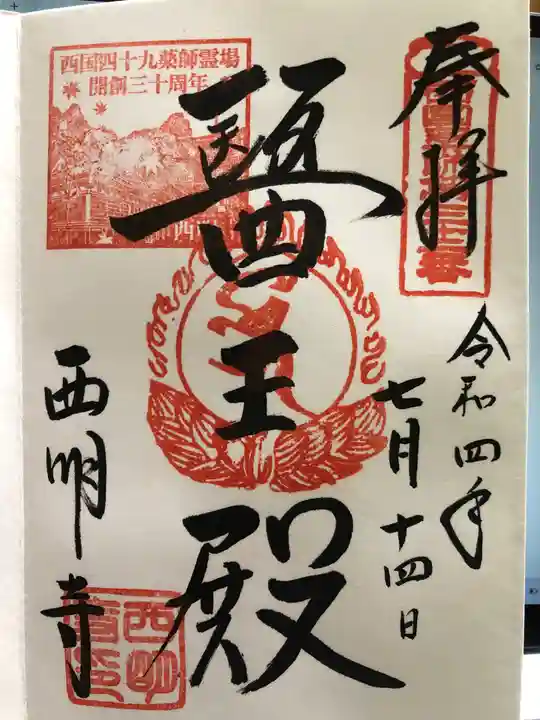 奉拝
令和四年
七月十四日
西国四十九薬師霊場
開創三十周年
醫王殿
西明寺